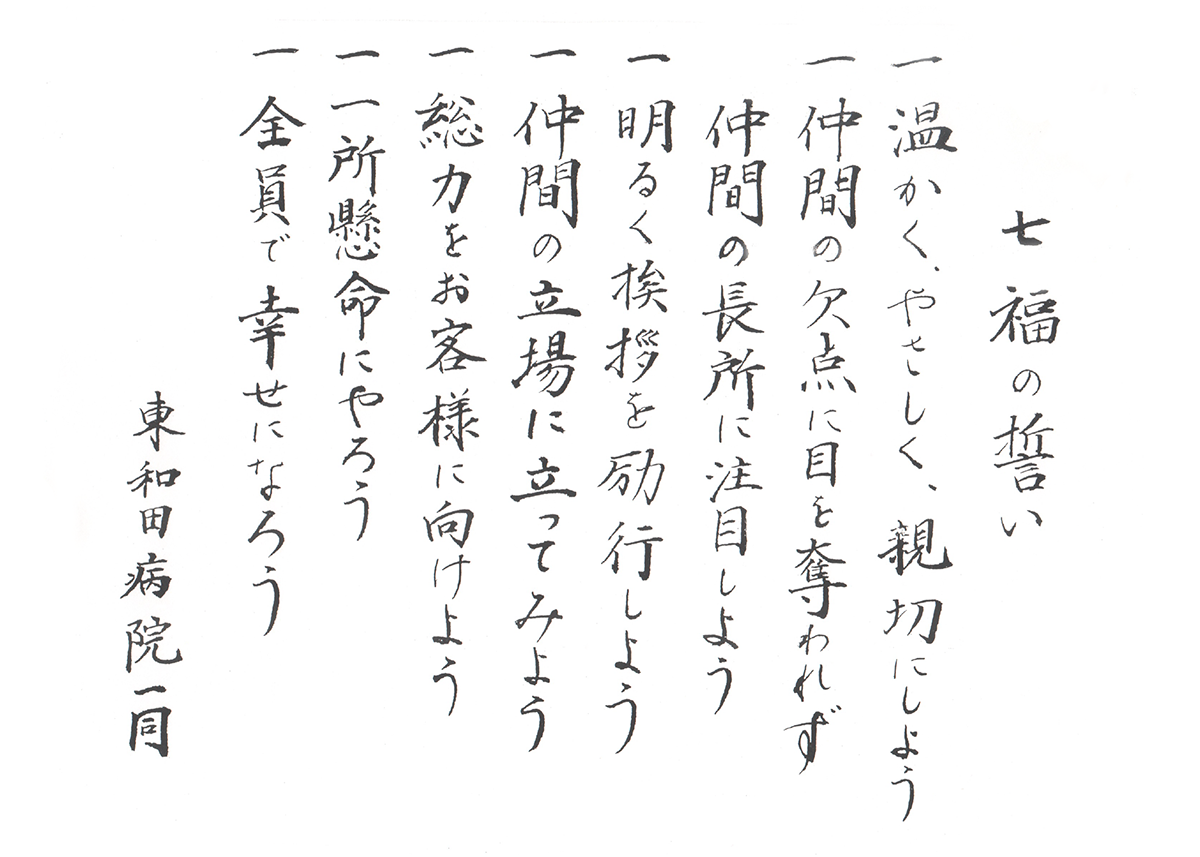 七福の誓い
一 温かく、やさしく、親切にしよう
一 仲間の欠点に目を奪われず
仲間の長所に注目しよう
一 明るく挨拶を励行しよう
一 仲間の立場に立ってみよう
一 総力をお客様に向けよう
一 一所懸命にやろう
一 全員で幸せになろう
東和田病院一同